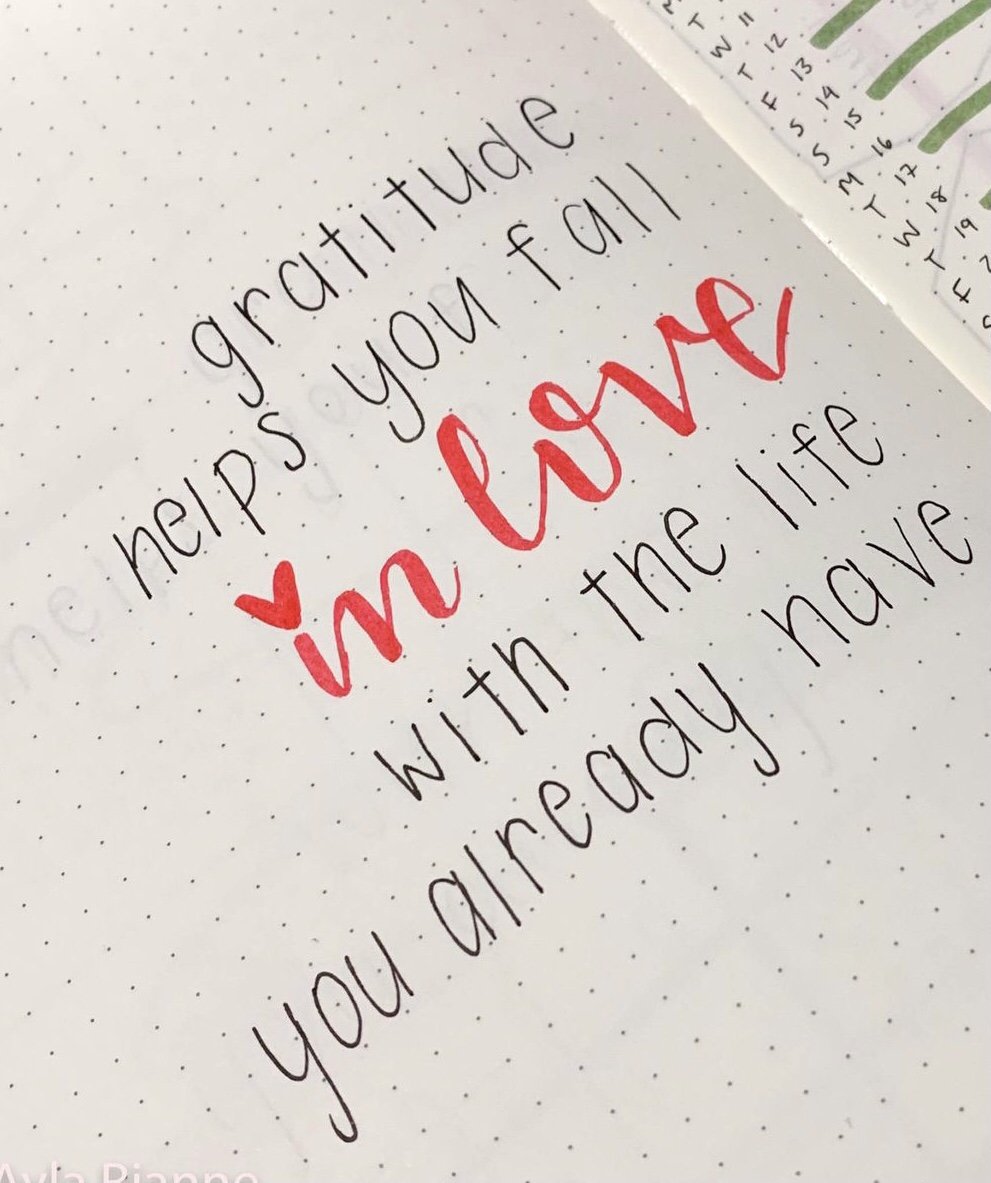 gratitude
helps you fall
in love
with the life
you already have
T
W 11
T 12
F 13
S 14
S 15
M 16
T 17
W 18
T 19
F